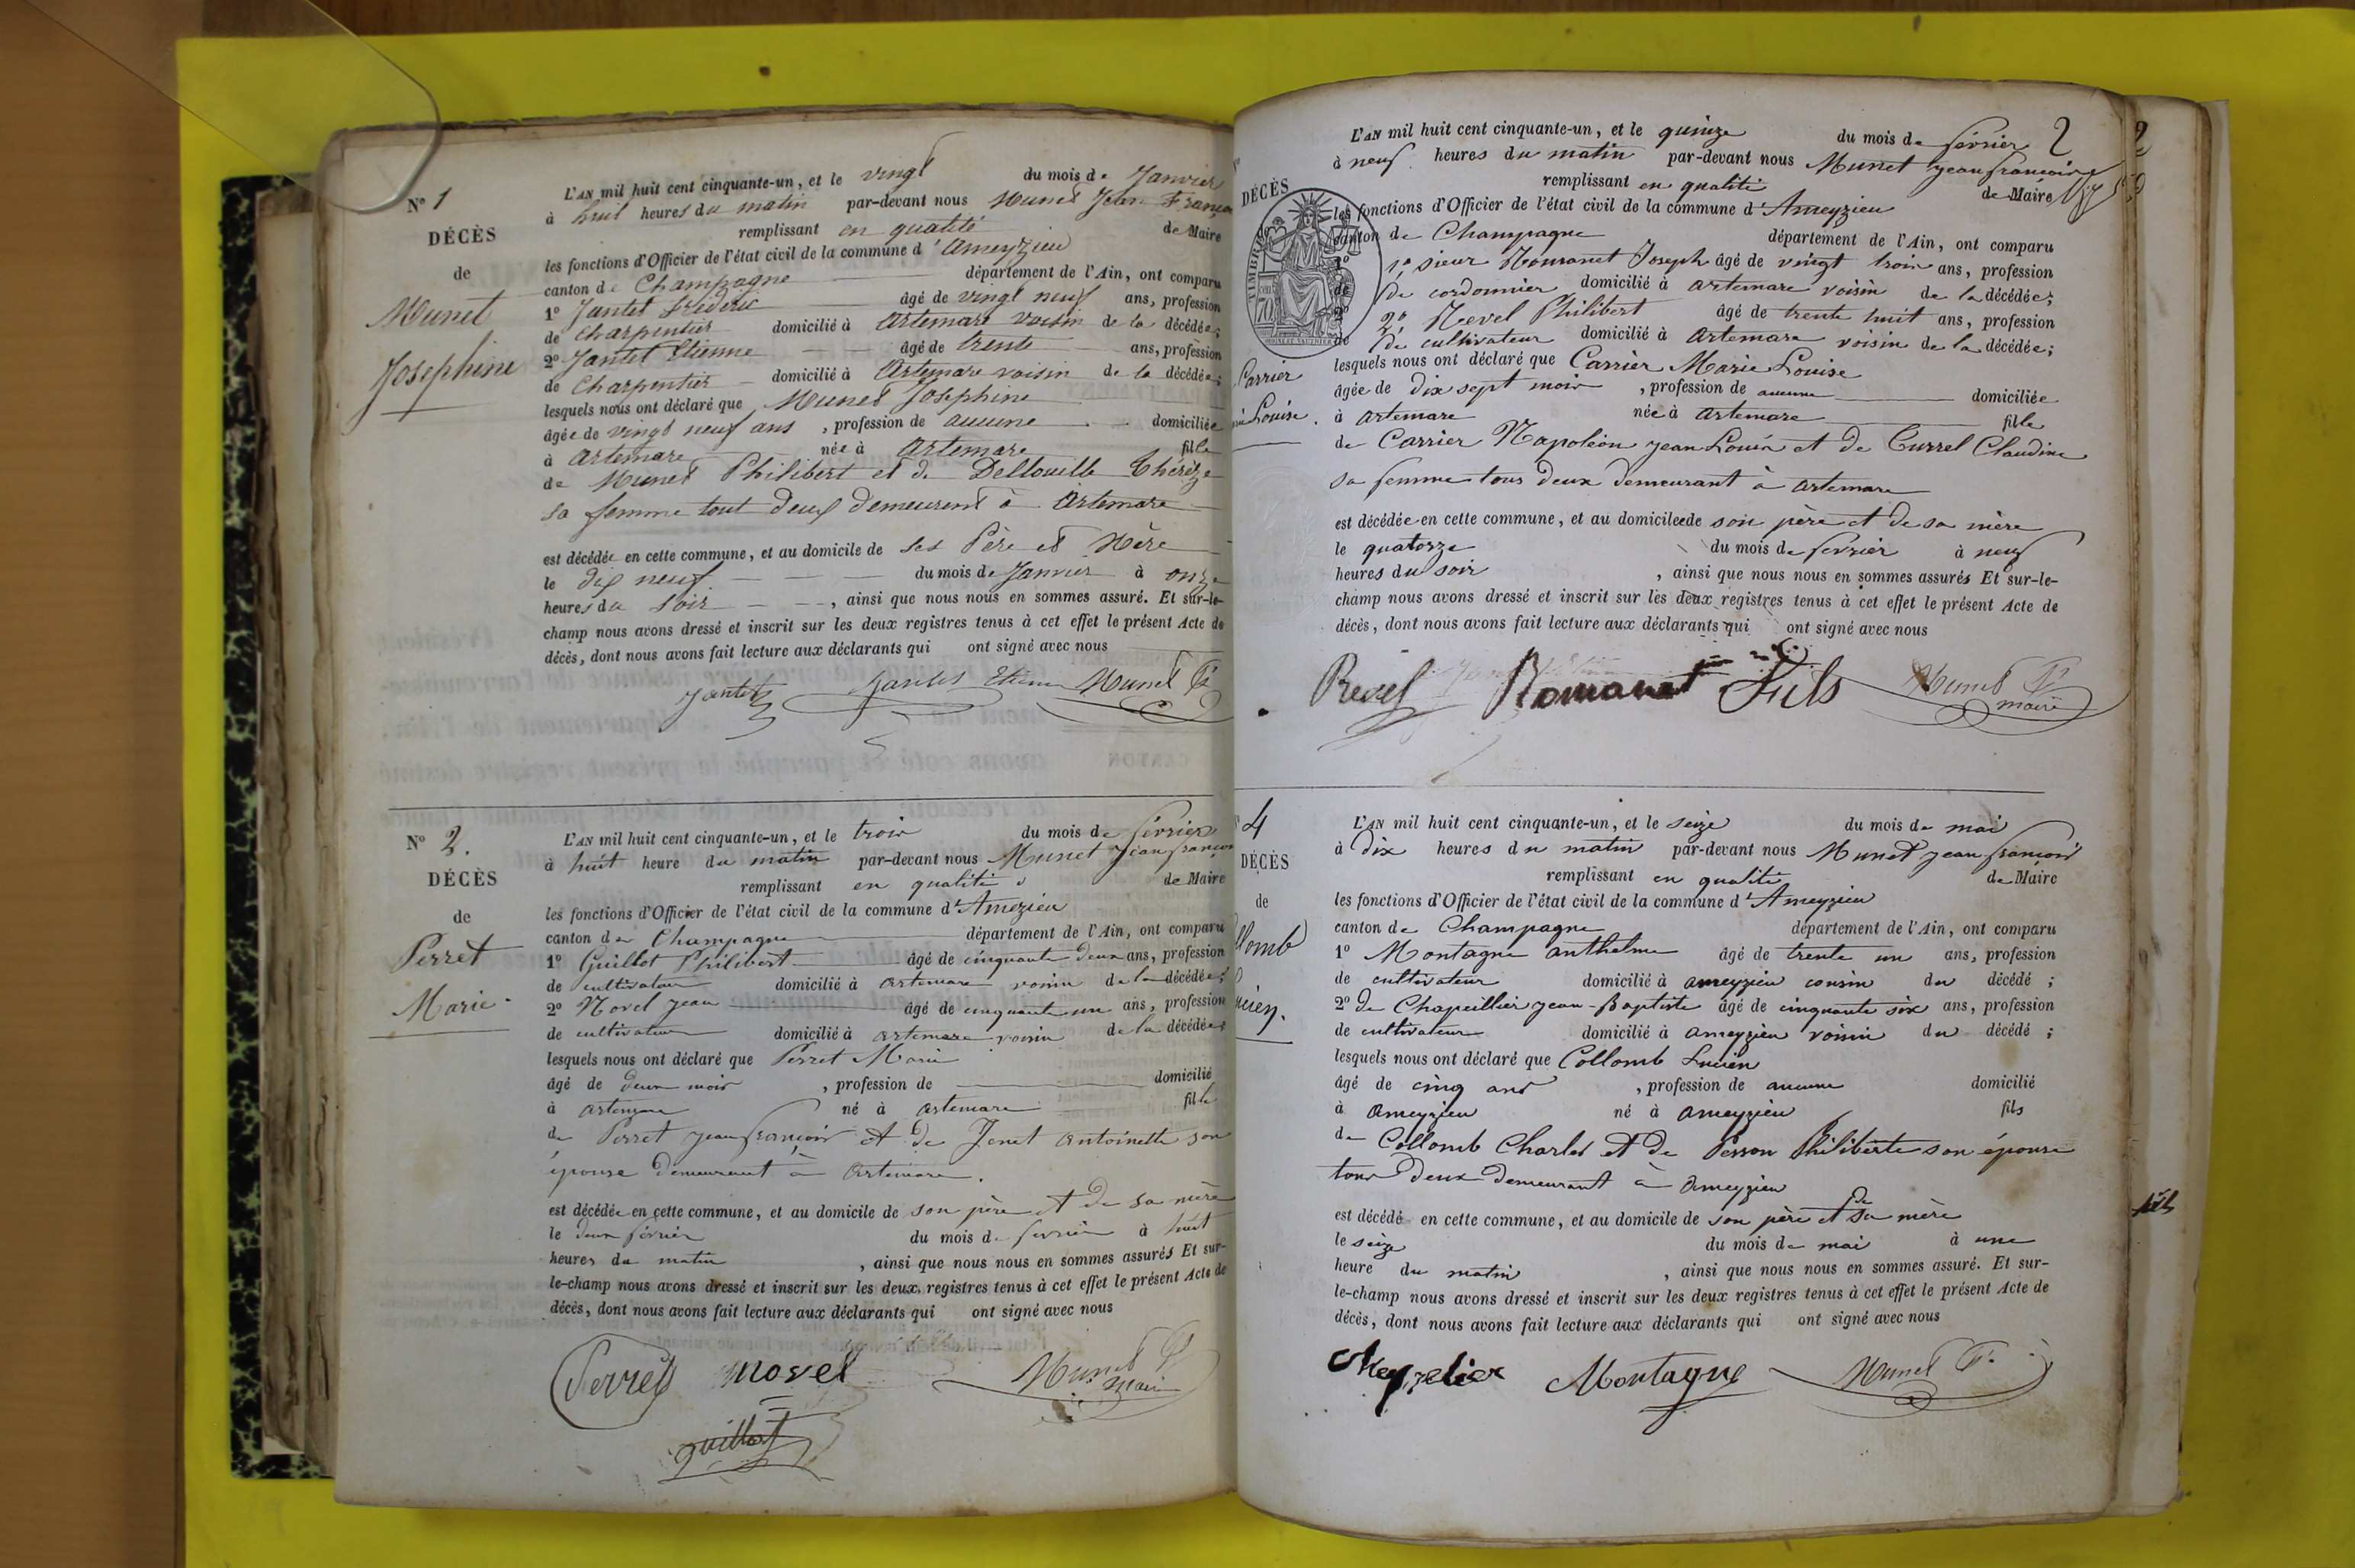 N° 1
DÉCÈS
de
Munet
Josephine
L'AN mil huit cent cinquante-un, et le vingt du mois de Janvier
à huit heures du matin par-devant nous Munet Jean Françoi
remplissant en qualité de Maire
les fonctions d'Officier de l'état civil de la commune d'Ameyzieu
canton de Champagne département de l'Ain, ont comparu
1° Jantet Fréderic âgé de vingt neuf ans, profession
de Charpentier domicilié à Artemare voisin de la décédée;
2° Jantet Etienne âgé de trente ans, profession
de Charpentier domicilié à Artemare voisin de la décédée;
lesquels nous ont déclaré que Munet Josephine
âgée de vingt neuf ans, profession de aucune domiciliée
à Artemare née à Artemare fille
de Munet Philibert et de Dellouille Thérèze
sa femme tout deux demeurent à Artemare
est décédée en cette commune, et au domicile de ses Père et Mère
le dix neuf du mois de Janvier à onze
heures du soir, ainsi que nous nous en sommes assuré. Et sur-le-
champ nous avons dressé et inscrit sur les deux registres tenus à cet effet le présent Acte de
décès, dont nous avons fait lecture aux déclarants qui ont signé avec nous
Jantet Jantet Etienne Munet
N° 2.
DÉCÈS
de
Perret
Marie
L'AN mil huit cent cinquante-un, et le trois du mois de février
à huit heure du matin par-devant nous Munet jean françois
remplissant en qualité de Maire
les fonctions d'Officier de l'état civil de la commune d'Amezieu
canton de Champagne département de l'Ain, ont comparu
1° Guillot Philibert âgé de cinquante deux ans, profession
de cultivateur domicilié à artemare voisin de la décédée;
2° Novel jean âgé de cinquante un ans, profession
de cultivateur domicilié à artemare voisin de la décédée;
lesquels nous ont déclaré que Perret Marie
âgé de deux mois, profession de domicilié
à artemare né à artemare fille
de Perret jean françois et de Jenet antoinette son
épouse demeurant à artemare.
est décédée en cette commune, et au domicile de son père et de sa mère
le deux février du mois de février à huit
heures du matin, ainsi que nous nous en sommes assurés Et sur-
le-champ nous avons dressé et inscrit sur les deux registres tenus à cet effet le présent Acte de
décès, dont nous avons fait lecture aux déclarants qui ont signé avec nous
Perret Novel Munet
maire
guillot
2
L'AN mil huit cent cinquante-un, et le quinze du mois de février
à neuf heures du matin par-devant nous Munet jean françois
remplissant en qualité de Maire
DÉCÈS
TIMBRE
Carrier
Louise
les fonctions d'Officier de l'état civil de la commune d'Ameyzieu
canton de Champagne département de l'Ain, ont comparu
1° sieur Romanet Joseph âgé de vingt trois ans, profession
de cordonnier domicilié à artemare voisin de la décédée;
2° Revel Philibert âgé de trente huit ans, profession
de cultivateur domicilié à artemare voisin de la décédée;
lesquels nous ont déclaré que Carrier Marie Louise
âgée de dix sept mois, profession de aucune domiciliée
à artemare née à artemare fille
de Carrier Napoléon jean Louis et de Currel Claudine
sa femme tous deux demeurant à artemare
est décédée en cette commune, et au domicile de son père et de sa mère
le quatorze du mois de février à neuf
heures du soir, ainsi que nous nous en sommes assurés Et sur-le-
champ nous avons dressé et inscrit sur les deux registres tenus à cet effet le présent Acte de
décès, dont nous avons fait lecture aux déclarants qui ont signé avec nous
Revel Romanet Fils Munet
maire
4
DÉCÈS
de
llomb
cien.
L'AN mil huit cent cinquante-un, et le seize du mois de mai
à dix heures du matin par-devant nous Munet jean françois
remplissant en qualité de Maire
les fonctions d'Officier de l'état civil de la commune d'Ameyzieu
canton de Champagne département de l'Ain, ont comparu
1° Montagne anthelme âgé de trente un ans, profession
de cultivateur domicilié à ameyzieu cousin du décédé;
2° de Chapeillier jean-Baptiste âgé de cinquante six ans, profession
de cultivateur domicilié à ameyzieu voisin du décédé;
lesquels nous ont déclaré que Collomb Lucien
âgé de cinq ans, profession de aucune domicilié
à ameyzieu né à ameyzieu fils
de Collomb Charles et de Pesson Philiberte son épouse
tous deux demeurant à ameyzieu
est décédé en cette commune, et au domicile de son père et de sa mère
le seize du mois de mai à une
heure du matin, ainsi que nous nous en sommes assuré. Et sur-
le-champ nous avons dressé et inscrit sur les deux registres tenus à cet effet le présent Acte de
décès, dont nous avons fait lecture aux déclarants qui ont signé avec nous
Montagne Munet